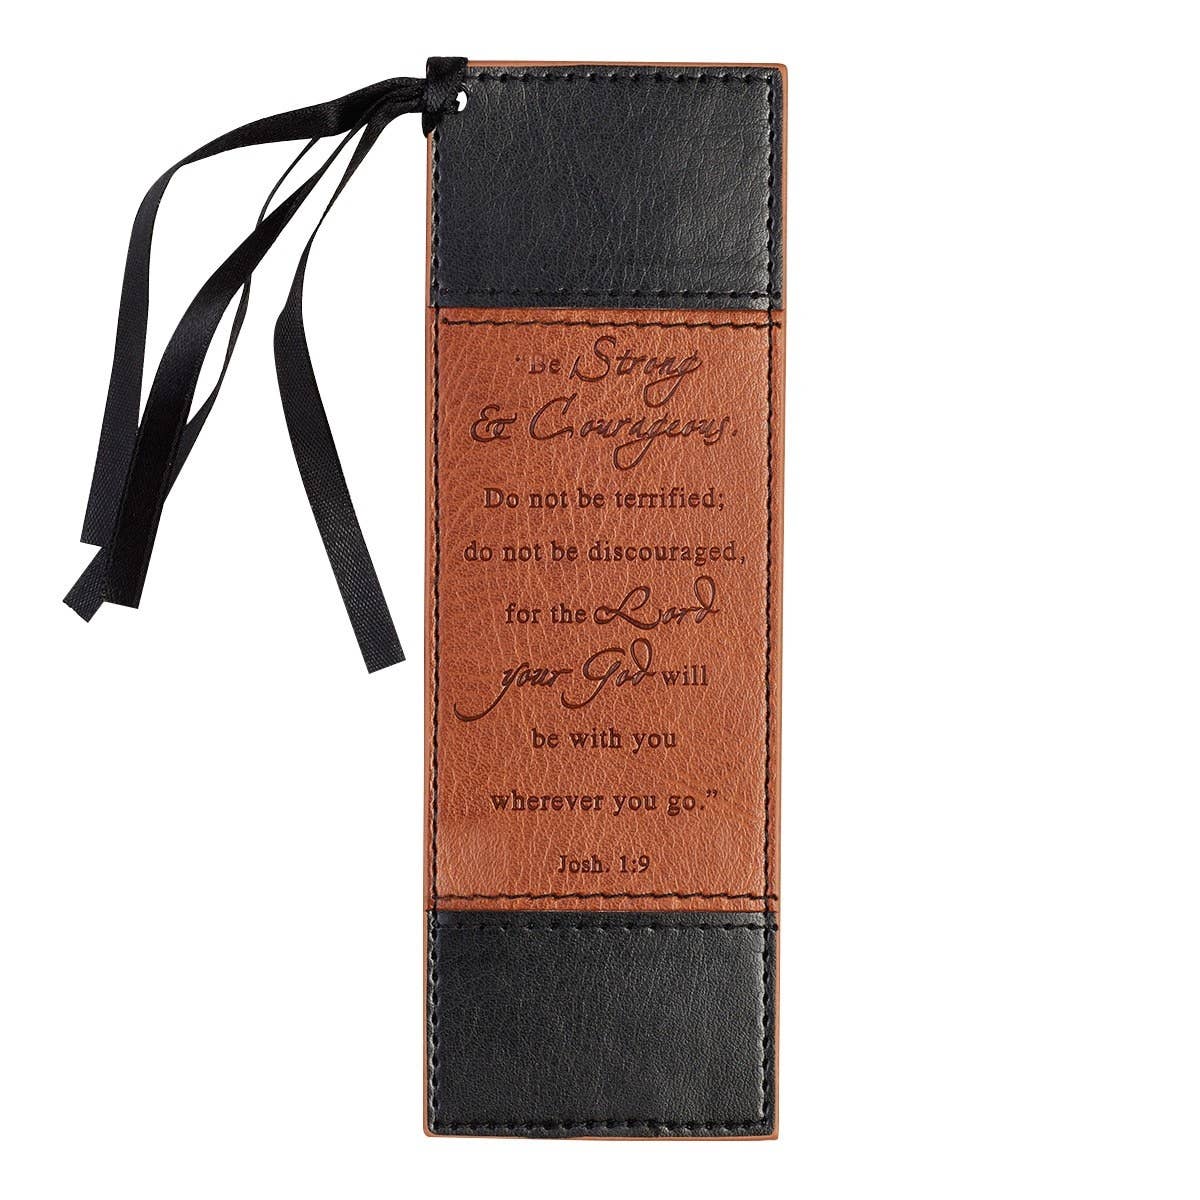 “Be Strong
& Courageous.
Do not be terrified;
do not be discouraged,
for the Lord
your God will
be with you
wherever you go.”
Josh. 1:9